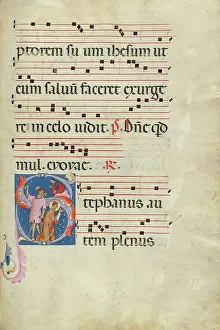 ptorem su um ihesum ut
eum saluū faceret exurge
re in celo uidit. P. Dn̄e qd
mul. euouae. R.
Stephanus au
tem plenus